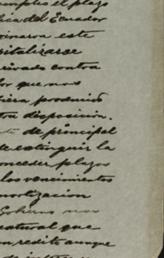 cumplies el plazo
lica del Ecuador
sionaron este
pitalizarse
erivado contra
lor que nos
biera producido
tra disposicion.
de principal
de estinguir la
onceder plazos
los vencimientos
mortizacion
Gobierno nos
natural que
un redito aunque